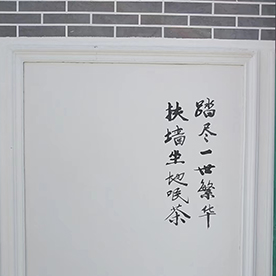 踏尽一世繁华
扶墙坐地呡茶